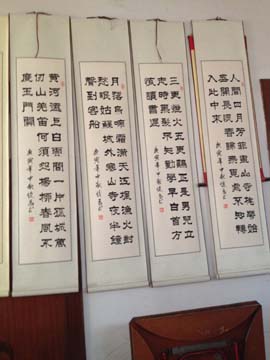 人間四月芳菲盡山寺桃花始
盛開長恨春歸無覓處不知轉
入此中來
庚寅年中秋
三更燈火五更雞正是男兒立
志時黑髮不知勤學早白首方
悔讀書遲
庚寅年中秋
月落烏啼霜滿天江楓漁火對
愁眠姑蘇城外寒山寺夜半鐘
聲到客船
庚寅年中秋
黃河遠上白雲間一片孤城萬
仞山羌笛何須怨楊柳春風不
度玉門關
庚寅年中秋